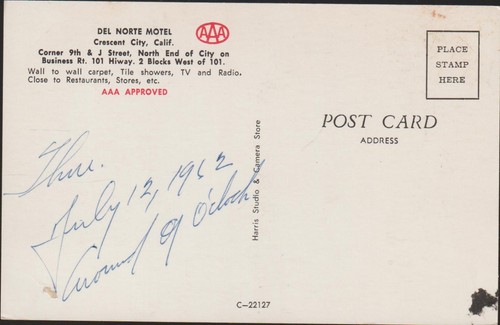 DEL NORTE MOTEL
Crescent City, Calif.
Corner 9th & J Street, North End of City on
Business Rt. 101 Hiway. 2 Blocks West of 101.
Wall to wall carpet, Tile showers, TV and Radio.
Close to Restaurants, Stores, etc.
AAA APPROVED
AAA
PLACE
STAMP
HERE
POST CARD
ADDRESS
Thur.
July 12, 1962
Around 9 O'clock
Harris Studio & Camera Store
C-22127